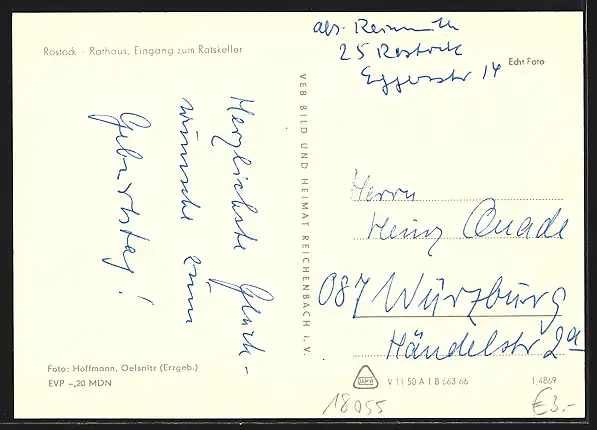 Rostock - Rathaus, Eingang zum Ratskeller
Herzlichste Glück-
wünsche zum
Geburtstag!
Foto: Hoffmann, Oelsnitz (Erzgeb.)
EVP -,20 MDN
VEB BILD UND HEIMAT REICHENBACH i. V.
abs. Reinmuth
25 Rostock
Eggersstr 14
Echt Foto
Herrn
Heinz Quade
087 Würzburg
Händelstr 2a
V 11 50 A 1 B 663 66
1,4869
18055
€3.-